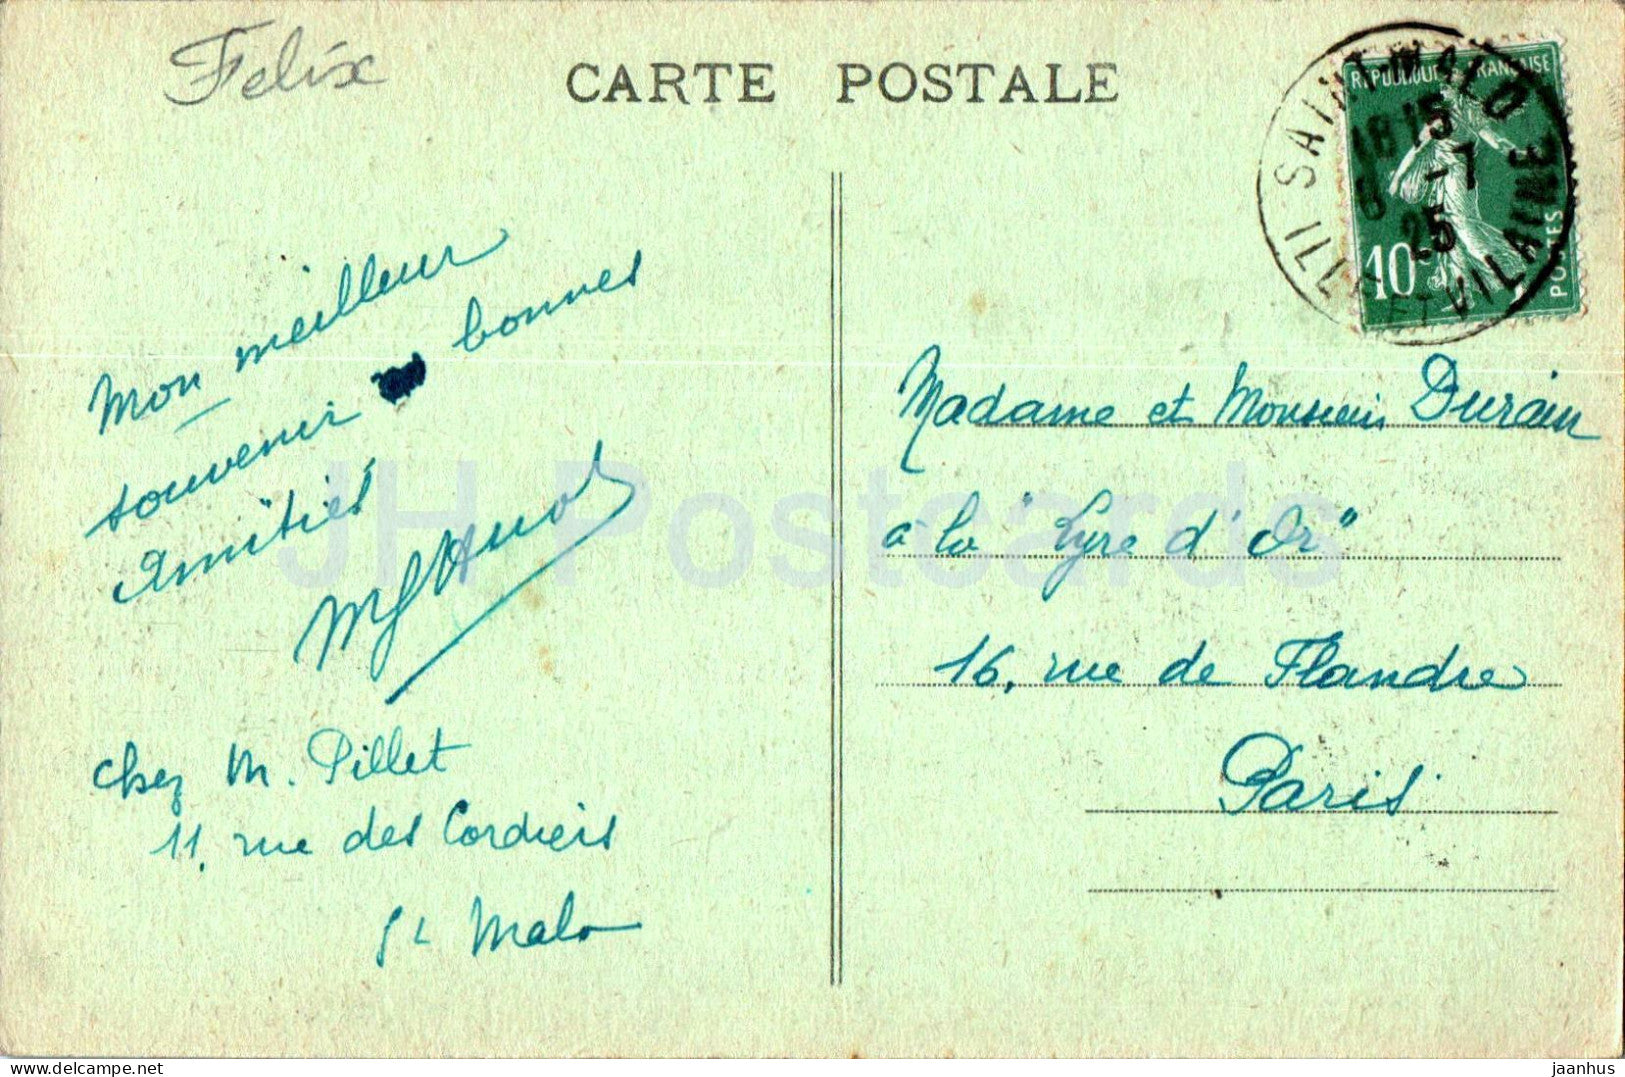 Felix
CARTE POSTALE
SAINT-MALO
18 15
8 -7
25
ILLE ET VILAINE
REPUBLIQUE FRANÇAISE
10c
POSTES
Mon meilleur
souvenir bonnes
Amitiés
chez M. Pillet
11, rue des Cordiers
St Malo
Madame et Monsieur
à la "Lyre d'Or"
16, rue de Flandre
Paris
JH Postcards
delcampe.net
jaanhus